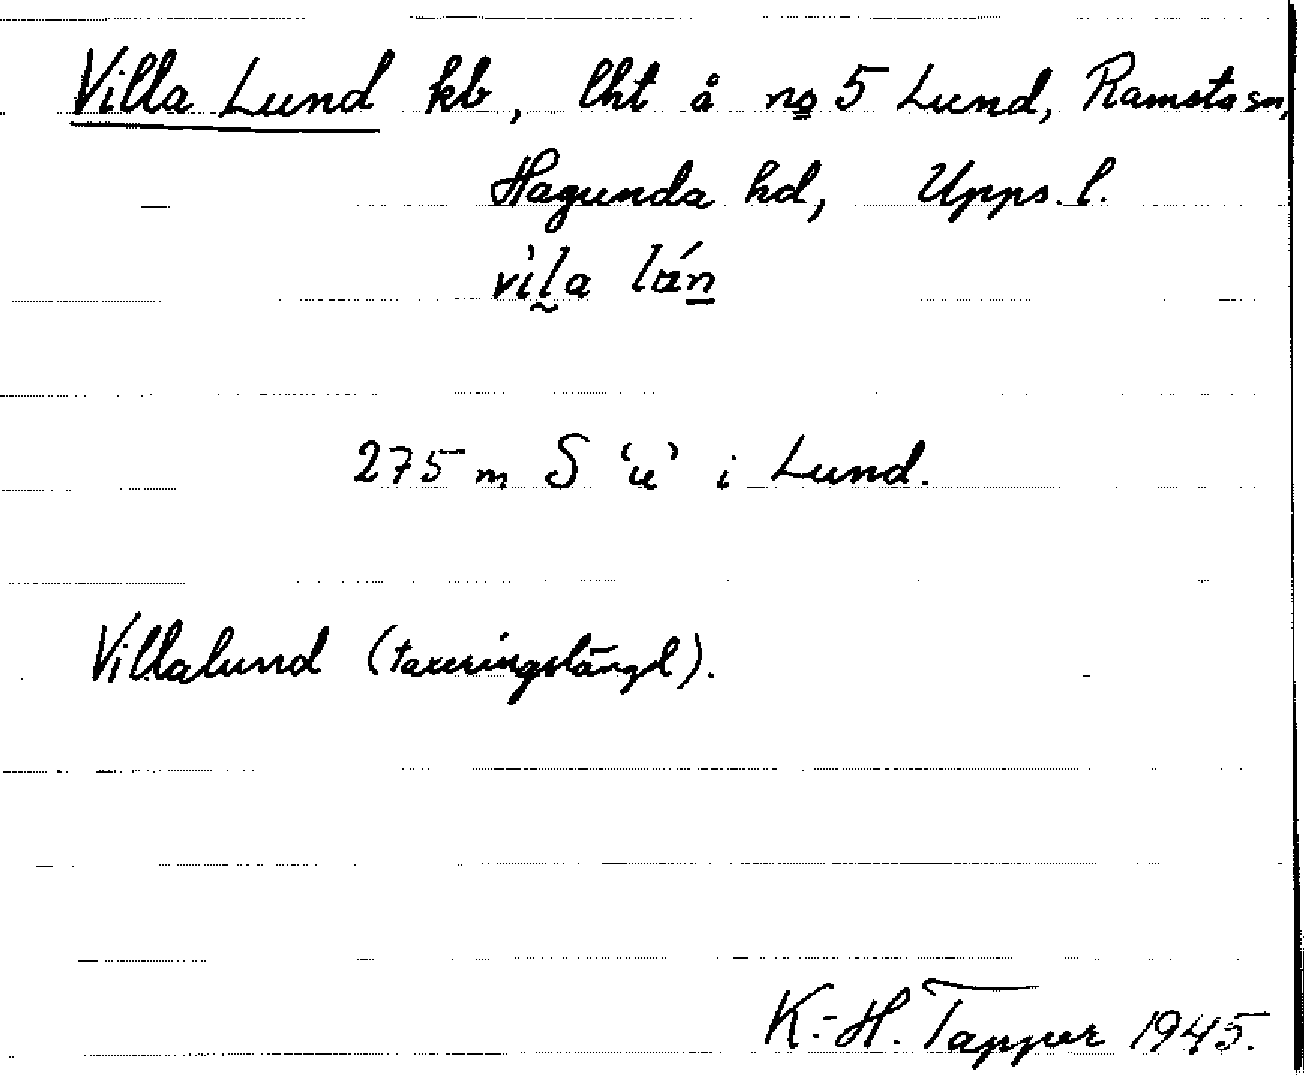 Villa Lund kb, lht å no 5 Lund, Ramsta sn,
Hagunda hd, Upps. l.
vìl̰a lán̲
275 m S 'u' i Lund.
Villalund (taxeringslängd).
K.-H. Tapper 1945.